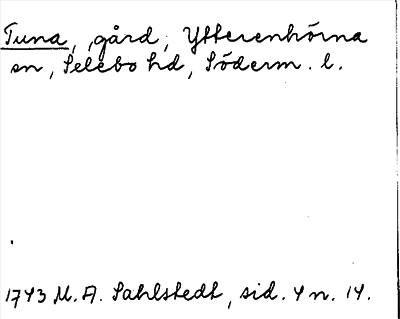 Tuna, gård, Ytterenhörna
sn, Selebo hd, Söderm. l.
1743 M. A. Sahlstedt, sid. 4 n. 14.